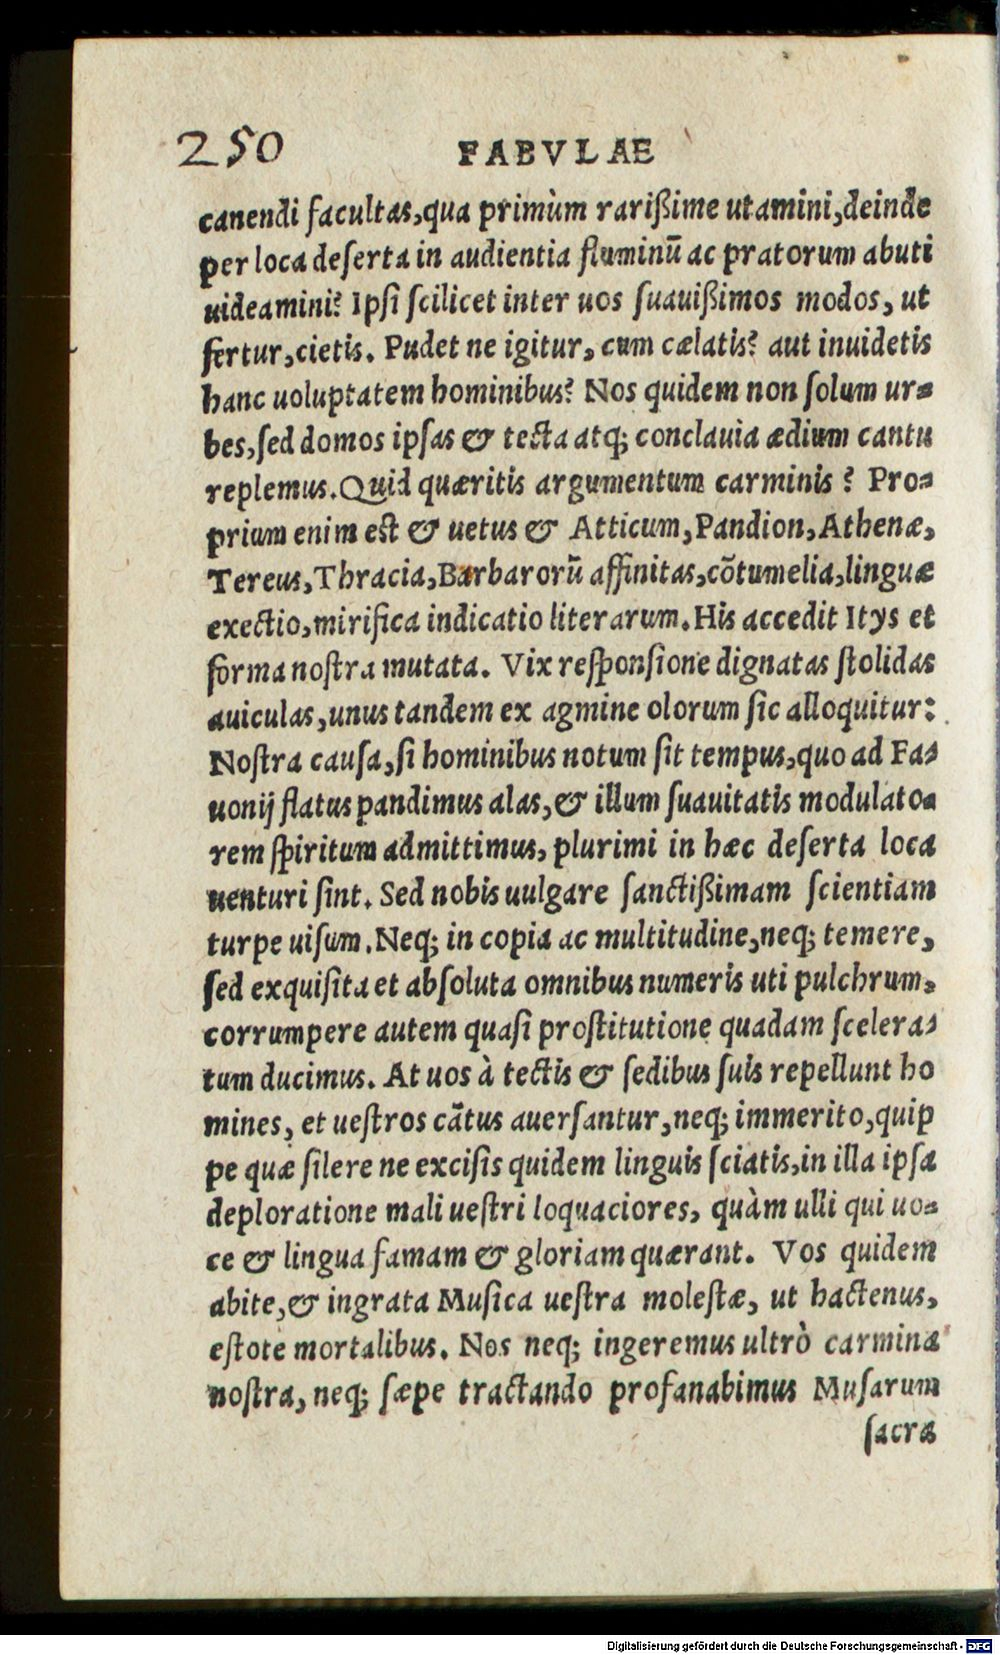 250 FABVLAE
canendi facultas, qua primùm rarißime utamini, deinde
per loca deſerta in audientia fluminū ac pratorum abuti
uideamini? Ipſi ſcilicet inter uos ſuauißimos modos, ut
fertur, cietis. Pudet ne igitur, cum cælatis? aut inuidetis
hanc uoluptatem hominibus? Nos quidem non ſolum ur-
bes, ſed domos ipſas & tecta atq; conclauia ædium cantu
replemus. Quid quæritis argumentum carminis? Pro-
prium enim est & uetus & Atticum, Pandion, Athenæ,
Tereus, Thracia, Barbarorū affinitas, cōtumelia, linguæ
exectio, mirifica indicatio literarum. His accedit Itys et
forma noſtra mutata. Vix reſponſione dignatas ſtolidas
auiculas, unus tandem ex agmine olorum ſic alloquitur:
Noſtra cauſa, ſi hominibus notum ſit tempus, quo ad Fa-
uonij flatus pandimus alas, & illum ſuauitatis modulato-
rem ſpiritum admittimus, plurimi in hæc deſerta loca
uenturi ſint. Sed nobis uulgare ſanctißimam ſcientiam
turpe uiſum. Neq; in copia ac multitudine, neq; temere,
ſed exquiſita et abſoluta omnibus numeris uti pulchrum,
corrumpere autem quaſi proſtitutione quadam ſcelera-
tum ducimus. At uos à tectis & ſedibus ſuis repellunt ho
mines, et ueſtros cātus auerſantur, neq; immerito, quip
pe quæ ſilere ne exciſis quidem linguis ſciatis, in illa ipſa
deploratione mali ueſtri loquaciores, quàm ulli qui uo-
ce & lingua famam & gloriam quærant. Vos quidem
abite, & ingrata Muſica ueſtra moleſtæ, ut hactenus,
eſtote mortalibus. Nos neq; ingeremus ultrò carmina
noſtra, neq; ſæpe tractando profanabimus Muſarum
ſacra
Digitalisierung gefördert durch die Deutsche Forschungsgemeinschaft - DFG